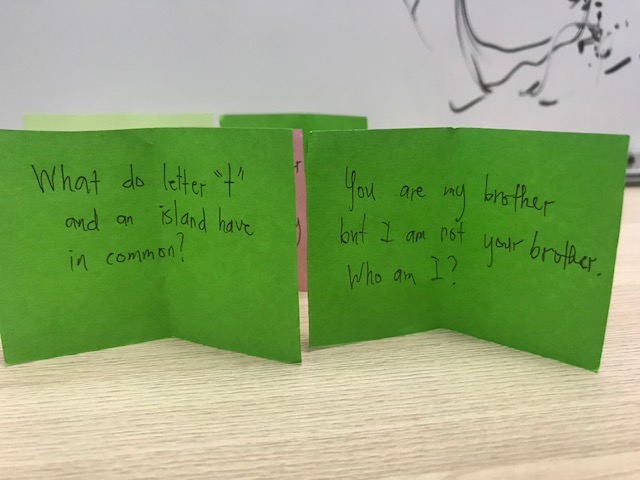 What do letter "t"
and an island have
in common?
You are my brother
but I am not your brother.
Who am I?